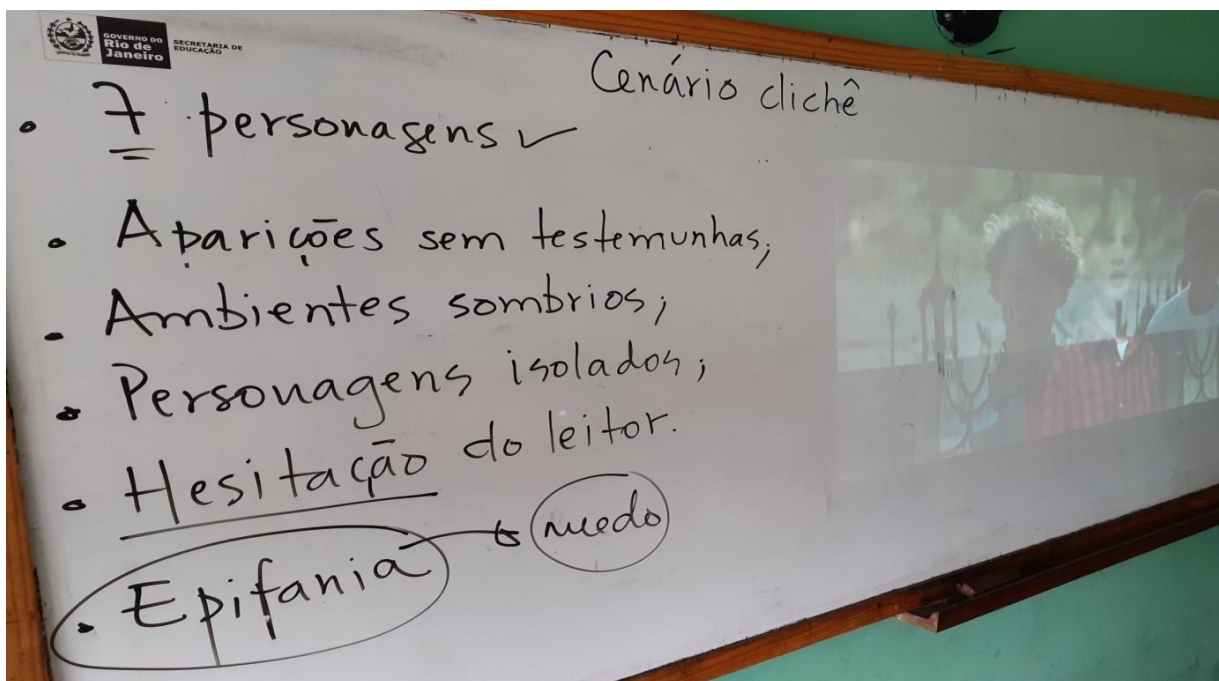 GOVERNO DO
Rio de
Janeiro
SECRETARIA DE
EDUCAÇÃO
Cenário clichê
• 7 personagens ✓
• Aparições sem testemunhas;
• Ambientes sombrios;
• Personagens isolados;
• Hesitação do leitor.
• Epifania → medo